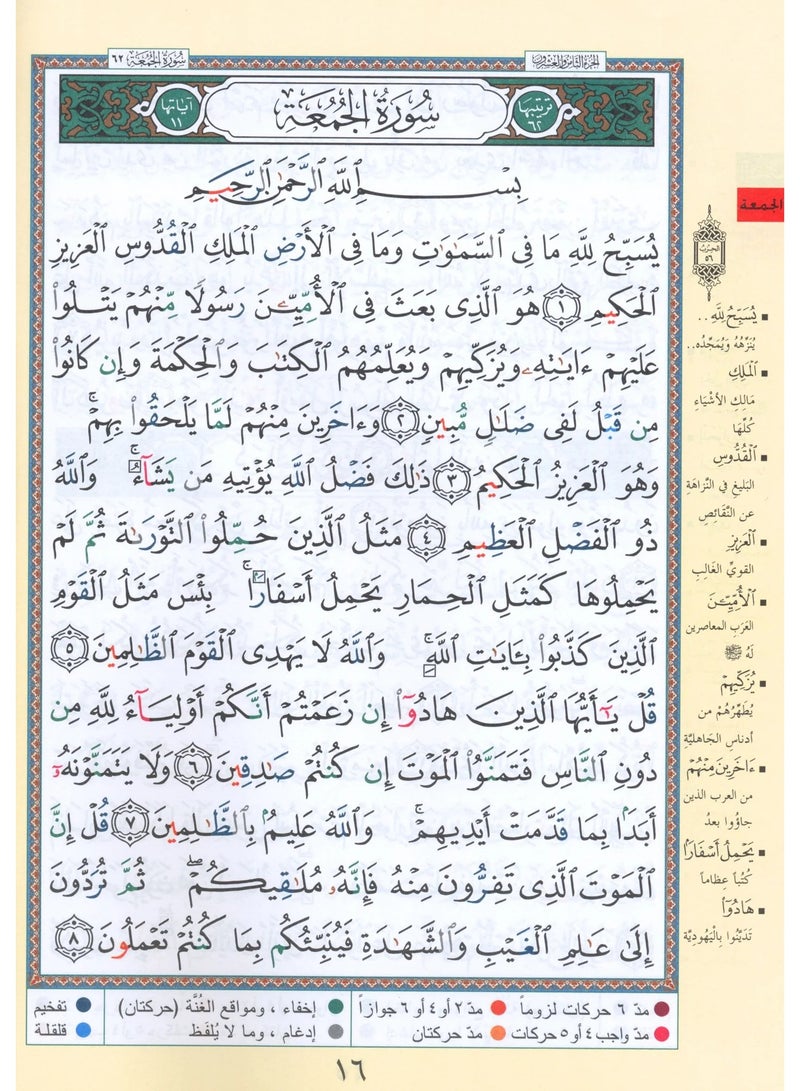 سُورَةُ الجُمُعَة ٦٢
الجُزءُ الثَّامِنُ وَالعِشرُونَ
آيَاتُهَا ١١
سُورَةُ الجُمُعَةِ
تَرْتِيبُهَا ٦٢
بِسْمِ ٱللَّهِ ٱلرَّحْمَٰنِ ٱلرَّحِيمِ
يُسَبِّحُ لِلَّهِ مَا فِى ٱلسَّمَٰوَٰتِ وَمَا فِى ٱلْأَرْضِ ٱلْمَلِكِ ٱلْقُدُّوسِ ٱلْعَزِيزِ
ٱلْحَكِيمِ ١ هُوَ ٱلَّذِى بَعَثَ فِى ٱلْأُمِّيِّـۧنَ رَسُولًا مِّنْهُمْ يَتْلُوا۟
عَلَيْهِمْ ءَايَٰتِهِۦ وَيُزَكِّيهِمْ وَيُعَلِّمُهُمُ ٱلْكِتَٰبَ وَٱلْحِكْمَةَ وَإِن كَانُوا۟
مِن قَبْلُ لَفِى ضَلَٰلٍ مُّبِينٍ ٢ وَءَاخَرِينَ مِنْهُمْ لَمَّا يَلْحَقُوا۟ بِهِمْ ۚ
وَهُوَ ٱلْعَزِيزُ ٱلْحَكِيمُ ٣ ذَٰلِكَ فَضْلُ ٱللَّهِ يُؤْتِيهِ مَن يَشَآءُ ۚ وَٱللَّهُ
ذُو ٱلْفَضْلِ ٱلْعَظِيمِ ٤ مَثَلُ ٱلَّذِينَ حُمِّلُوا۟ ٱلتَّوْرَىٰةَ ثُمَّ لَمْ
يَحْمِلُوهَا كَمَثَلِ ٱلْحِمَارِ يَحْمِلُ أَسْفَارًۢا ۚ بِئْسَ مَثَلُ ٱلْقَوْمِ
ٱلَّذِينَ كَذَّبُوا۟ بِـَٔايَٰتِ ٱللَّهِ ۚ وَٱللَّهُ لَا يَهْدِى ٱلْقَوْمَ ٱلظَّٰلِمِينَ ٥
قُلْ يَٰٓأَيُّهَا ٱلَّذِينَ هَادُوٓا۟ إِن زَعَمْتُمْ أَنَّكُمْ أَوْلِيَآءُ لِلَّهِ مِن
دُونِ ٱلنَّاسِ فَتَمَنَّوُا۟ ٱلْمَوْتَ إِن كُنتُمْ صَٰدِقِينَ ٦ وَلَا يَتَمَنَّوْنَهُۥٓ
أَبَدًۢا بِمَا قَدَّمَتْ أَيْدِيهِمْ ۚ وَٱللَّهُ عَلِيمٌۢ بِٱلظَّٰلِمِينَ ٧ قُلْ إِنَّ
ٱلْمَوْتَ ٱلَّذِى تَفِرُّونَ مِنْهُ فَإِنَّهُۥ مُلَٰقِيكُمْ ۖ ثُمَّ تُرَدُّونَ
إِلَىٰ عَٰلِمِ ٱلْغَيْبِ وَٱلشَّهَٰدَةِ فَيُنَبِّئُكُم بِمَا كُنتُمْ تَعْمَلُونَ ٨
الجمعة
الحزب ٥٦
▪ يُسَبِّحُ لِلَّهِ..
يُنَزِّهُهُ وَيُمَجِّدُه..
▪ ٱلْمَلِكِ
مَالِكِ الأَشْيَاءِ
كُلِّهَا
▪ ٱلْقُدُّوسِ
البَلِيغِ في النَّزَاهَةِ
عن النَّقَائِصِ
▪ ٱلْعَزِيزِ
القَوِيِّ الغَالِبِ
▪ ٱلْأُمِّيِّـۧنَ
العَرَبِ المعَاصرين
لَهُ ﷺ
▪ يُزَكِّيهِمْ
يُطَهِّرُهُمْ من
أدناسِ الجَاهليَّة
▪ ءَاخَرِينَ مِنْهُمْ
من العرب الذين
جاؤُوا بعدُ
▪ يَحْمِلُ أَسْفَارًا
كُتُباً عِظاماً
▪ هَادُوٓا۟
تَدَيَّنُوا بِاليَهُودِيَّةِ
مدّ ٦ حركات لزوماً مدّ ٢ أو ٤ أو ٦ جوازاً إخفاء ، ومواقع الغُنَّة (حركتان) تفخيم
مدّ واجب ٤ أو ٥ حركات مدّ حركتان إدغام ، وما لا يُلفَظ قلقلة
١٦